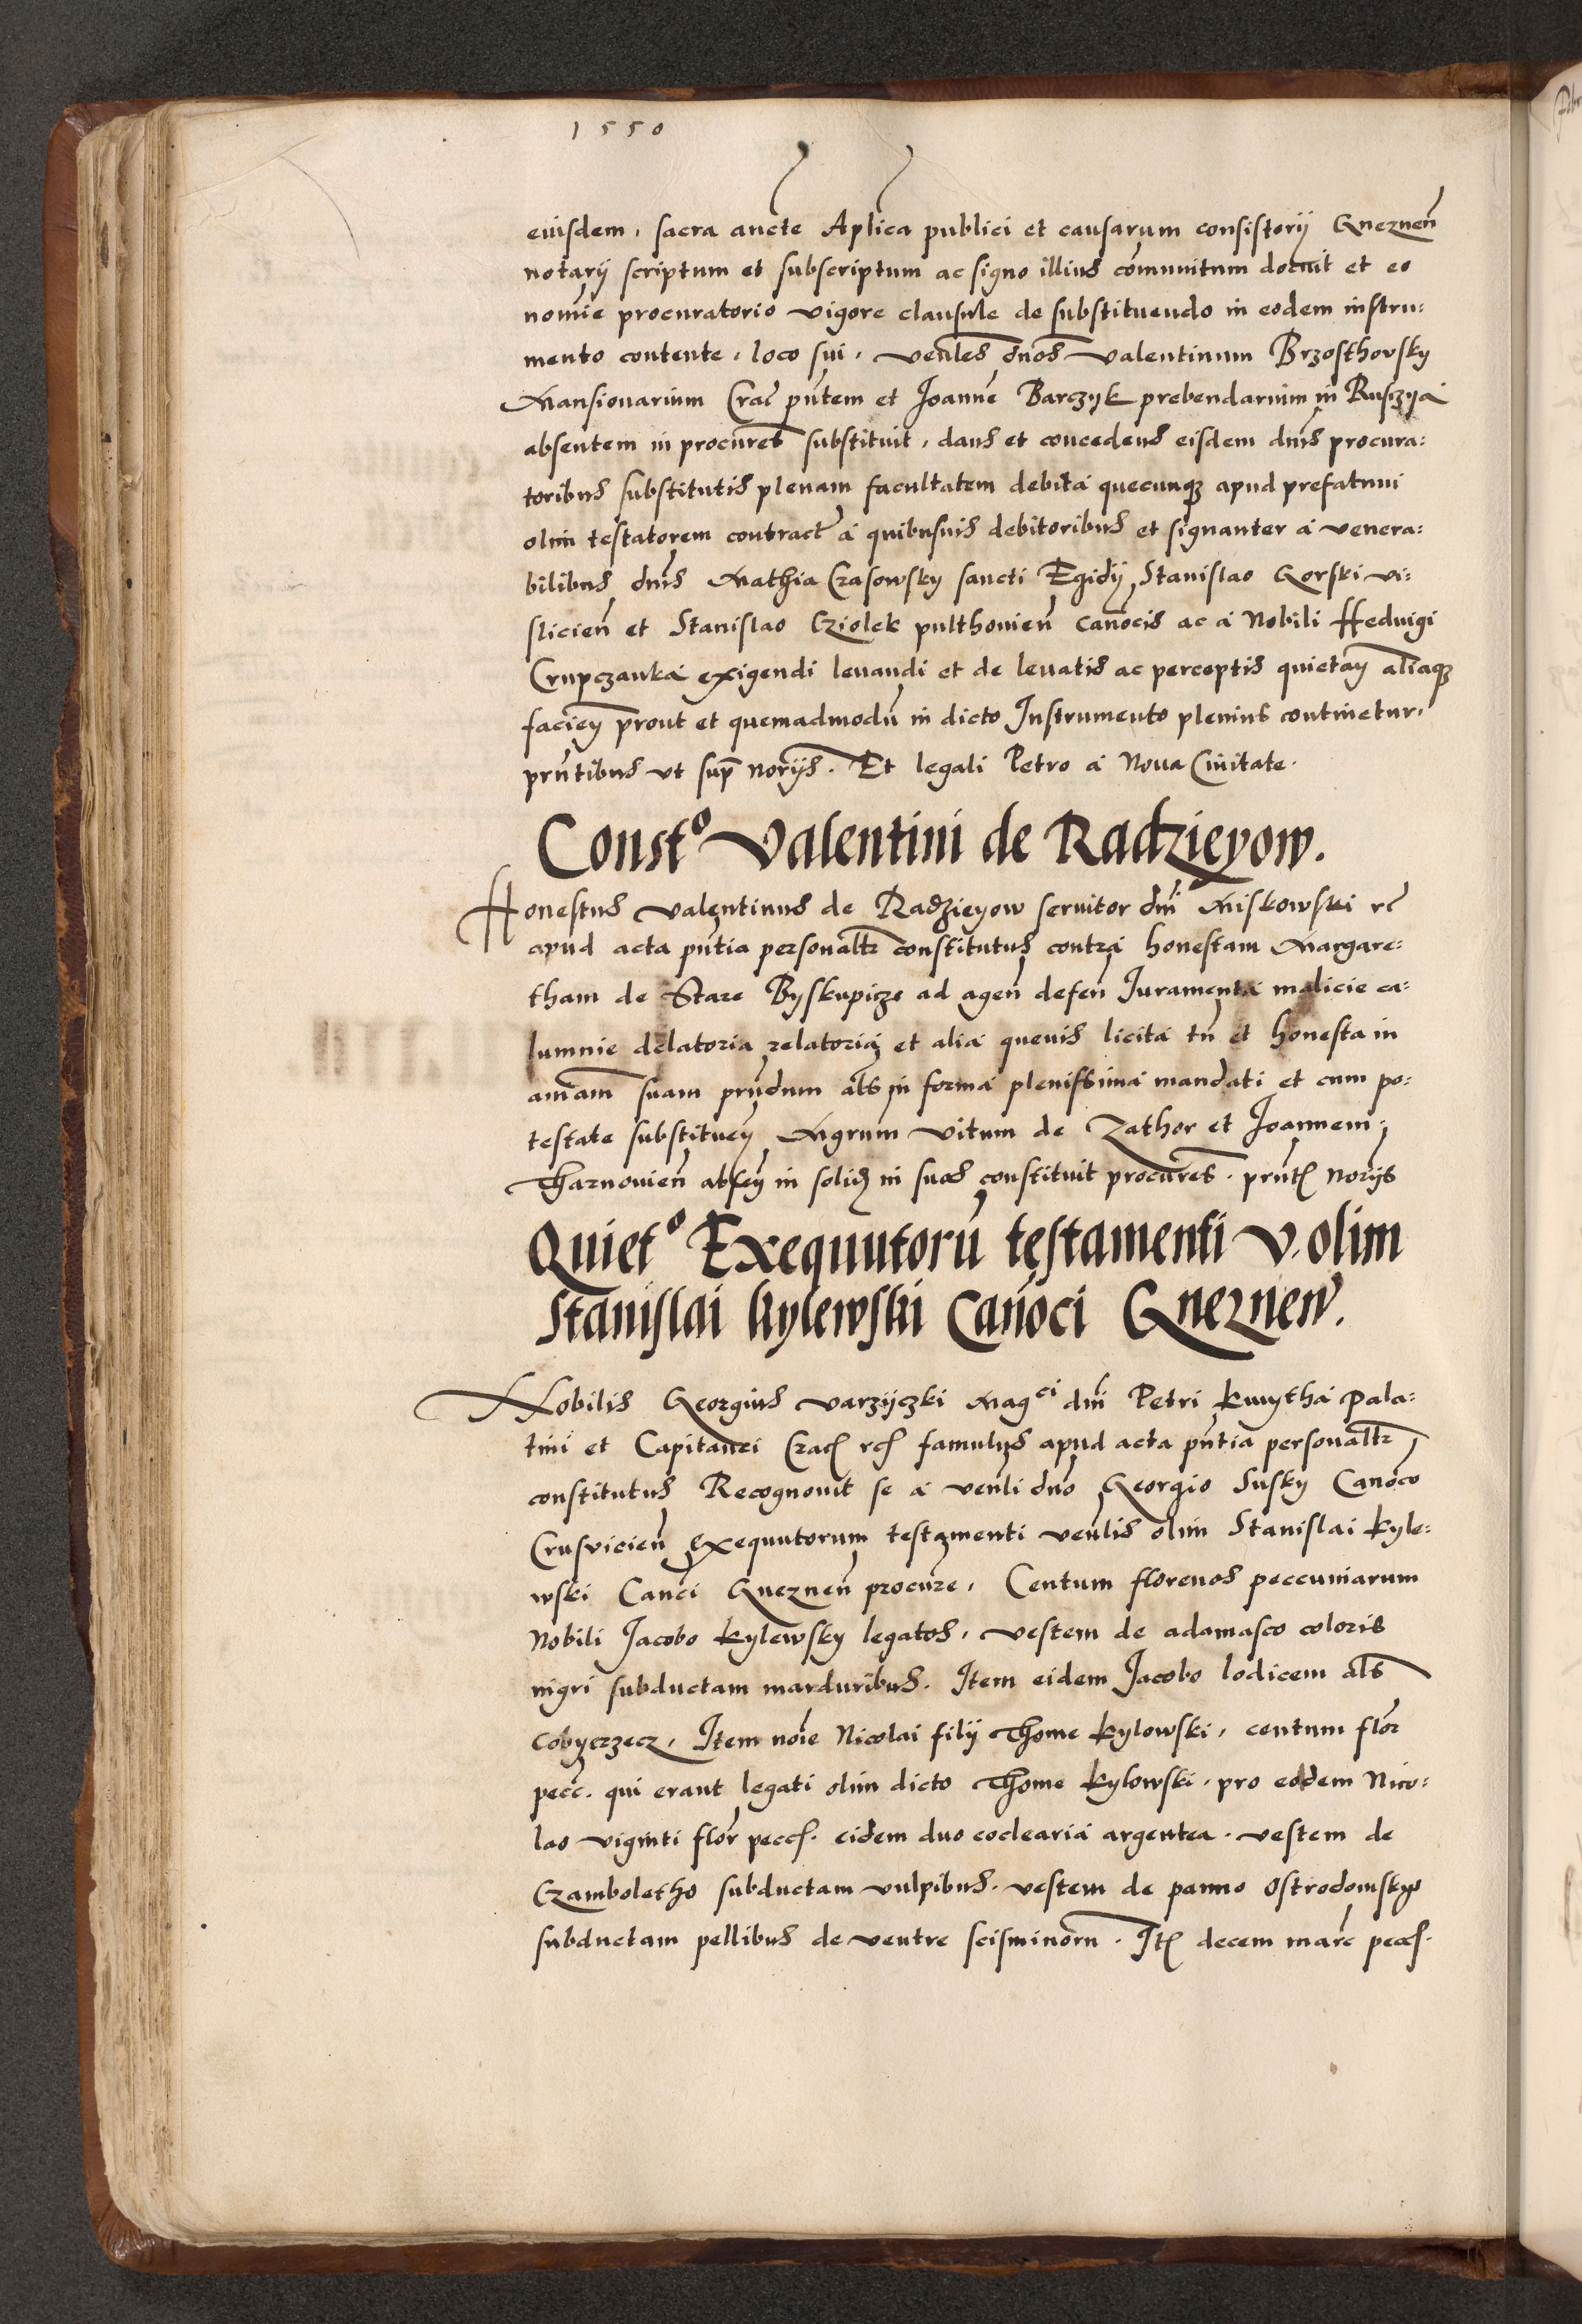 1550
eiusdem, sacra aucte Aplica publici et causarum consistorij Gneznen̄
notarij scriptum et subscriptum ac signo illius cōmunitum docuit et eo
nomīe procuratorio vigore clausule de substituendo in eodem instru:
mento contente, loco sui, ven̄les dn̄os Valentinum Brzosthovsky
Mansionarium Crac̄ pn̄tem et Joannē Barczyk prebendarium in Rusczya
absentem in procur̄es substituit, dans et concedens eisdem dn̄is procura:
toribus substitutis plenam facultatem debita quecunq₃ apud prefatum
olim testatorem contract̄ a quibusuis debitoribus et signanter a venera:
bilibus dn̄is Mathia Crasowsky sancti Egidij, Stanislao Gorski vi:
slicien̄ et Stanislao Cziolek pulthouien̄ can̄ocis ac a Nobili Heduigi
Crupczanka exigendi leuandi et de leuatis ac perceptis quietan̄ aliaq₃
facien̄ prout et quemadmodū in dicto Instrumento plenius continetur,
prn̄tibus vt sup̄ nor̄ijs. Et legali Petro a Noua Ciuitate.
Const⁰ Valentini de Radzieyow.
Honestus Valentinus de Radzieyow seruitor dn̄i Miskowski rc̄
apud acta pn̄tia personaltr̄ constitutus contra honestam Margare:
tham de Stare Byskupicze ad agen̄ defen̄ Juramenta malicie ca:
lumnie delatoria relatoria et alia queuis licita tn̄ et honesta in
an̄iam suam prn̄dum als̄ in forma plenissima mandati et cum po:
testate substituen̄ Mgrum Vitum de Zathor et Joannem
Tharnouien̄ absen̄ in solid̄ in suos constituit procur̄es. prn̄t̄ Nor̄ijs
Quiet⁰ Exequutorū testamenti V. olim
Stanislai Kylewski Can̄oci Gneznen̄.
Nobilis Georgius Varzyczki Magci dn̄i Petri kmytha Pala:
tini et Capitanei Crac̄ rc̄ famulus apud acta pn̄tia personaltr̄
constitutus Recognouit se a ven̄li dn̄o Georgio Susky Can̄oco
Crusvicien̄ Exequutorum testamenti ven̄lis olim Stanislai Kyle:
wski Can̄ci Gneznen̄ procur̄e, Centum florenos peccuniarum
Nobili Jacobo kylewsky legatos, vestem de adamasco coloris
nigri subductam marduribus. Item eidem Jacobo lodicem als̄
Cobyerzecz, Item no͞ie Nicolai filij Thome kylowski, centum flor̄
pecc̄. qui erant legati olim dicto Thome kylowski, pro eodem Nico:
lao viginti flor̄ pecc̄. eidem duo coclearia argentea. vestem de
Czamboletho subductam vulpibus. vestem de panno Ostrodomskye
subductam pellibus de ventre scisminorū. It̄ decem marc̄ pecc̄.